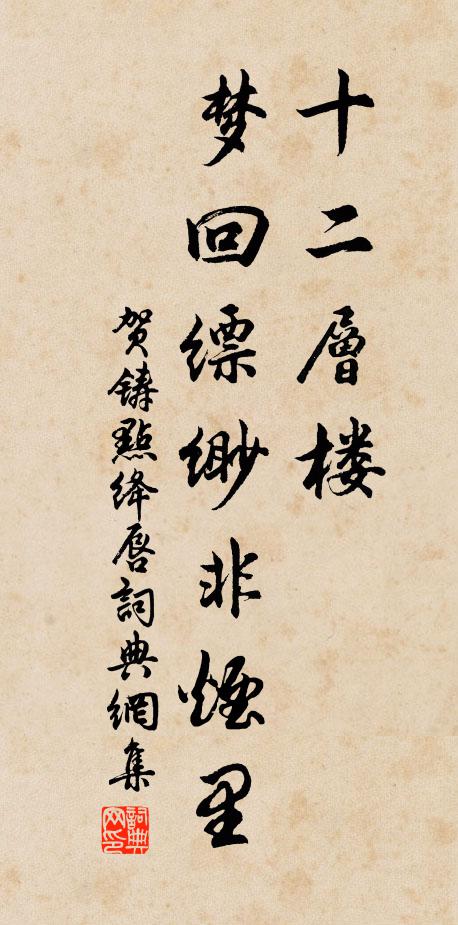 十二層楼
梦回缥缈非煙里
贺鑄點绛唇詞典網集
詞典网印